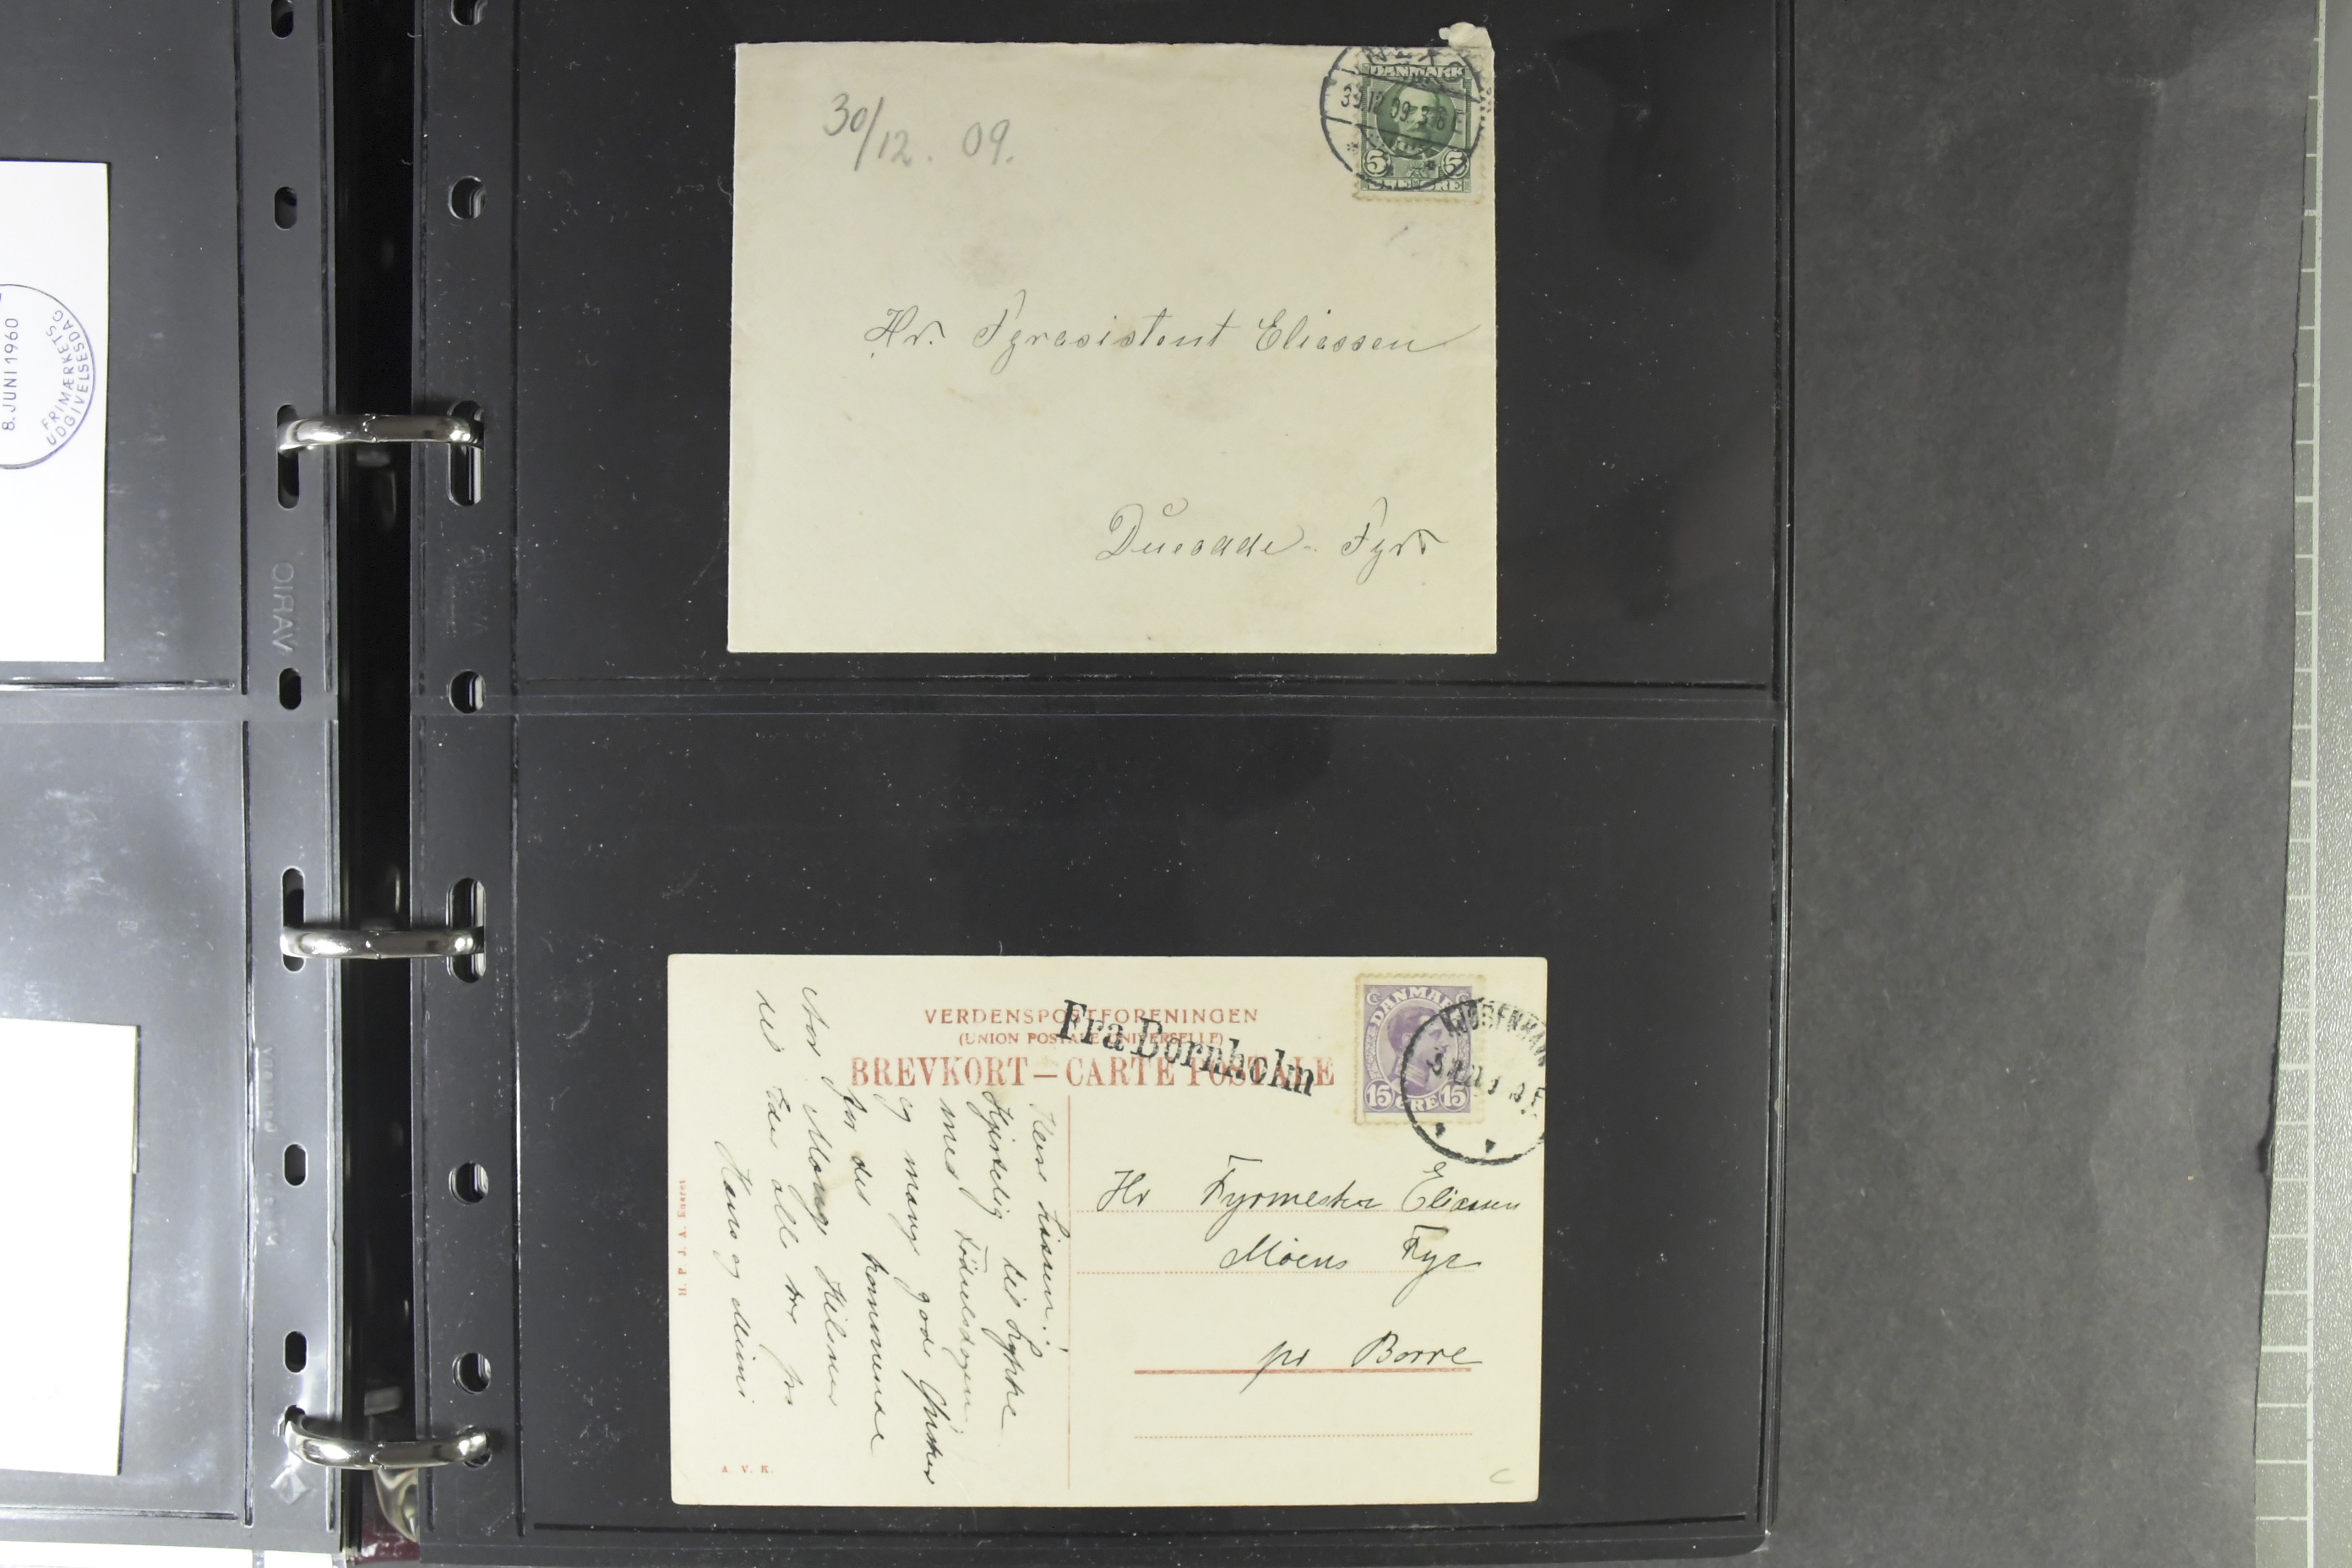 8.JUNI 1960
FRIMÆRKETS
UDGIVELSESDAG
VARIO
30/12. 09.
NEXØ
DANMARK
5 5
Hr. Fyrasistent Eliassen
Dueodde - Fyr
VERDENSPOSTFORENINGEN
(UNION POSTALE UNIVERSELLE)
BREVKORT — CARTE POSTALE
Fra Bornholm
DANMARK
15 ØRE 15
KJØBENHAVN
Hr Fyrmester Eliassen
Møens Fyr
pr Borre
Kære
Hjertelig til Lykke
med Fødselsdagen
og mange gode Ønsker
for det kommende
Aar Mange Hilsner
til Eder alle tre fra
Hans og Mimi
H. P. J. A. Eneret
A. V. K.